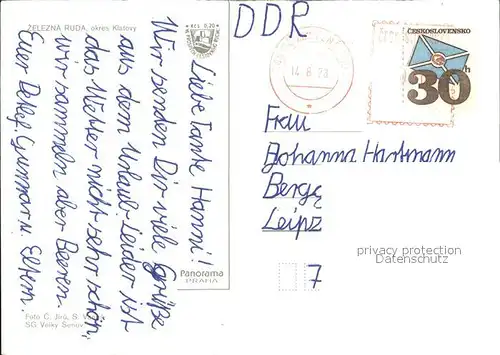 ŽELEZNÁ RUDA, okres Klatovy
Kčs 0,20
Liebe Tante Hanni!
Wir senden Dir viele Grüße
aus dem Urlaub. Leider ist
das Wetter nicht sehr schön,
wir sammeln aber Beeren.
Euer Detlef, Gunnar u. Eltern.
Foto C. Jírů, S.
SG Velký Šenov
Panorama
PRAHA
DDR
14.8.78
ČESKOSLOVENSKO
30h
Frau
Johanna Hartmann
Berge
Leipz
7
privacy protection
Datenschutz